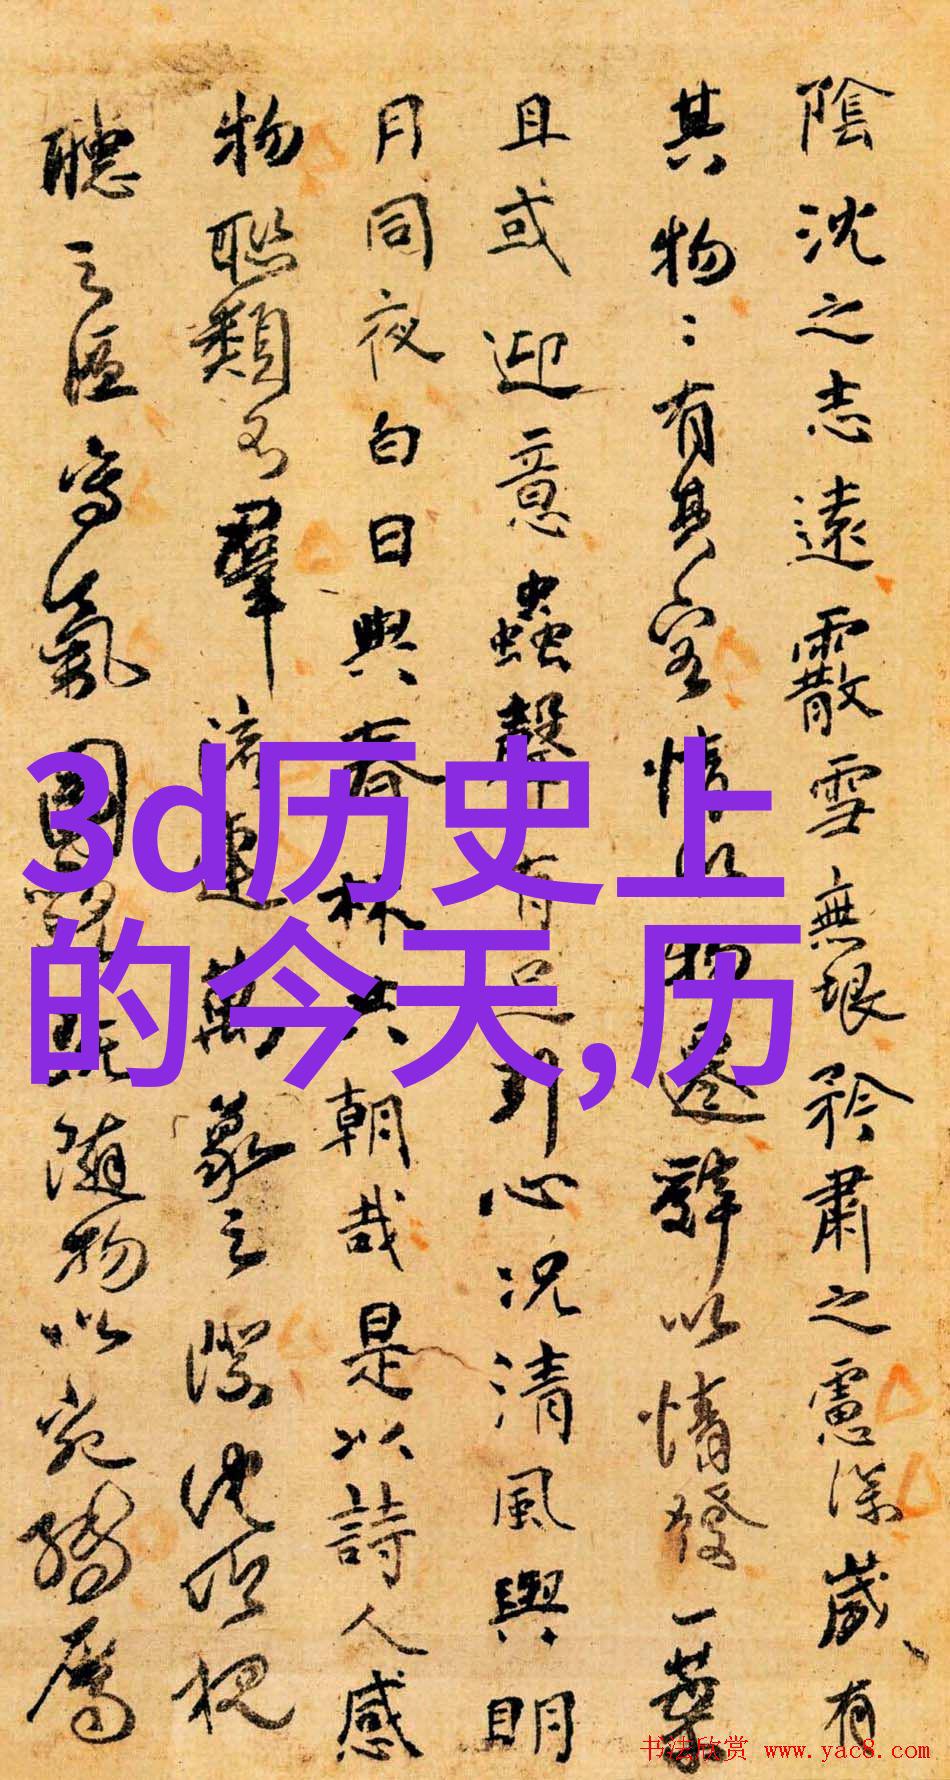 陰沈之志遠霰雪無垠矜肅之慮深歲有
其物ミ有其容情以物遷辭以情發一葉
且或迎意蟲聲有足引心况清風與明
月同夜白日與春林共朝哉是以詩人感
物聯類不窮流連萬象之際沈吟視
聽之區寫氣圖貌既隨物以宛轉屬
3d历史上
的今天,历
书法欣赏 www.yac8.com